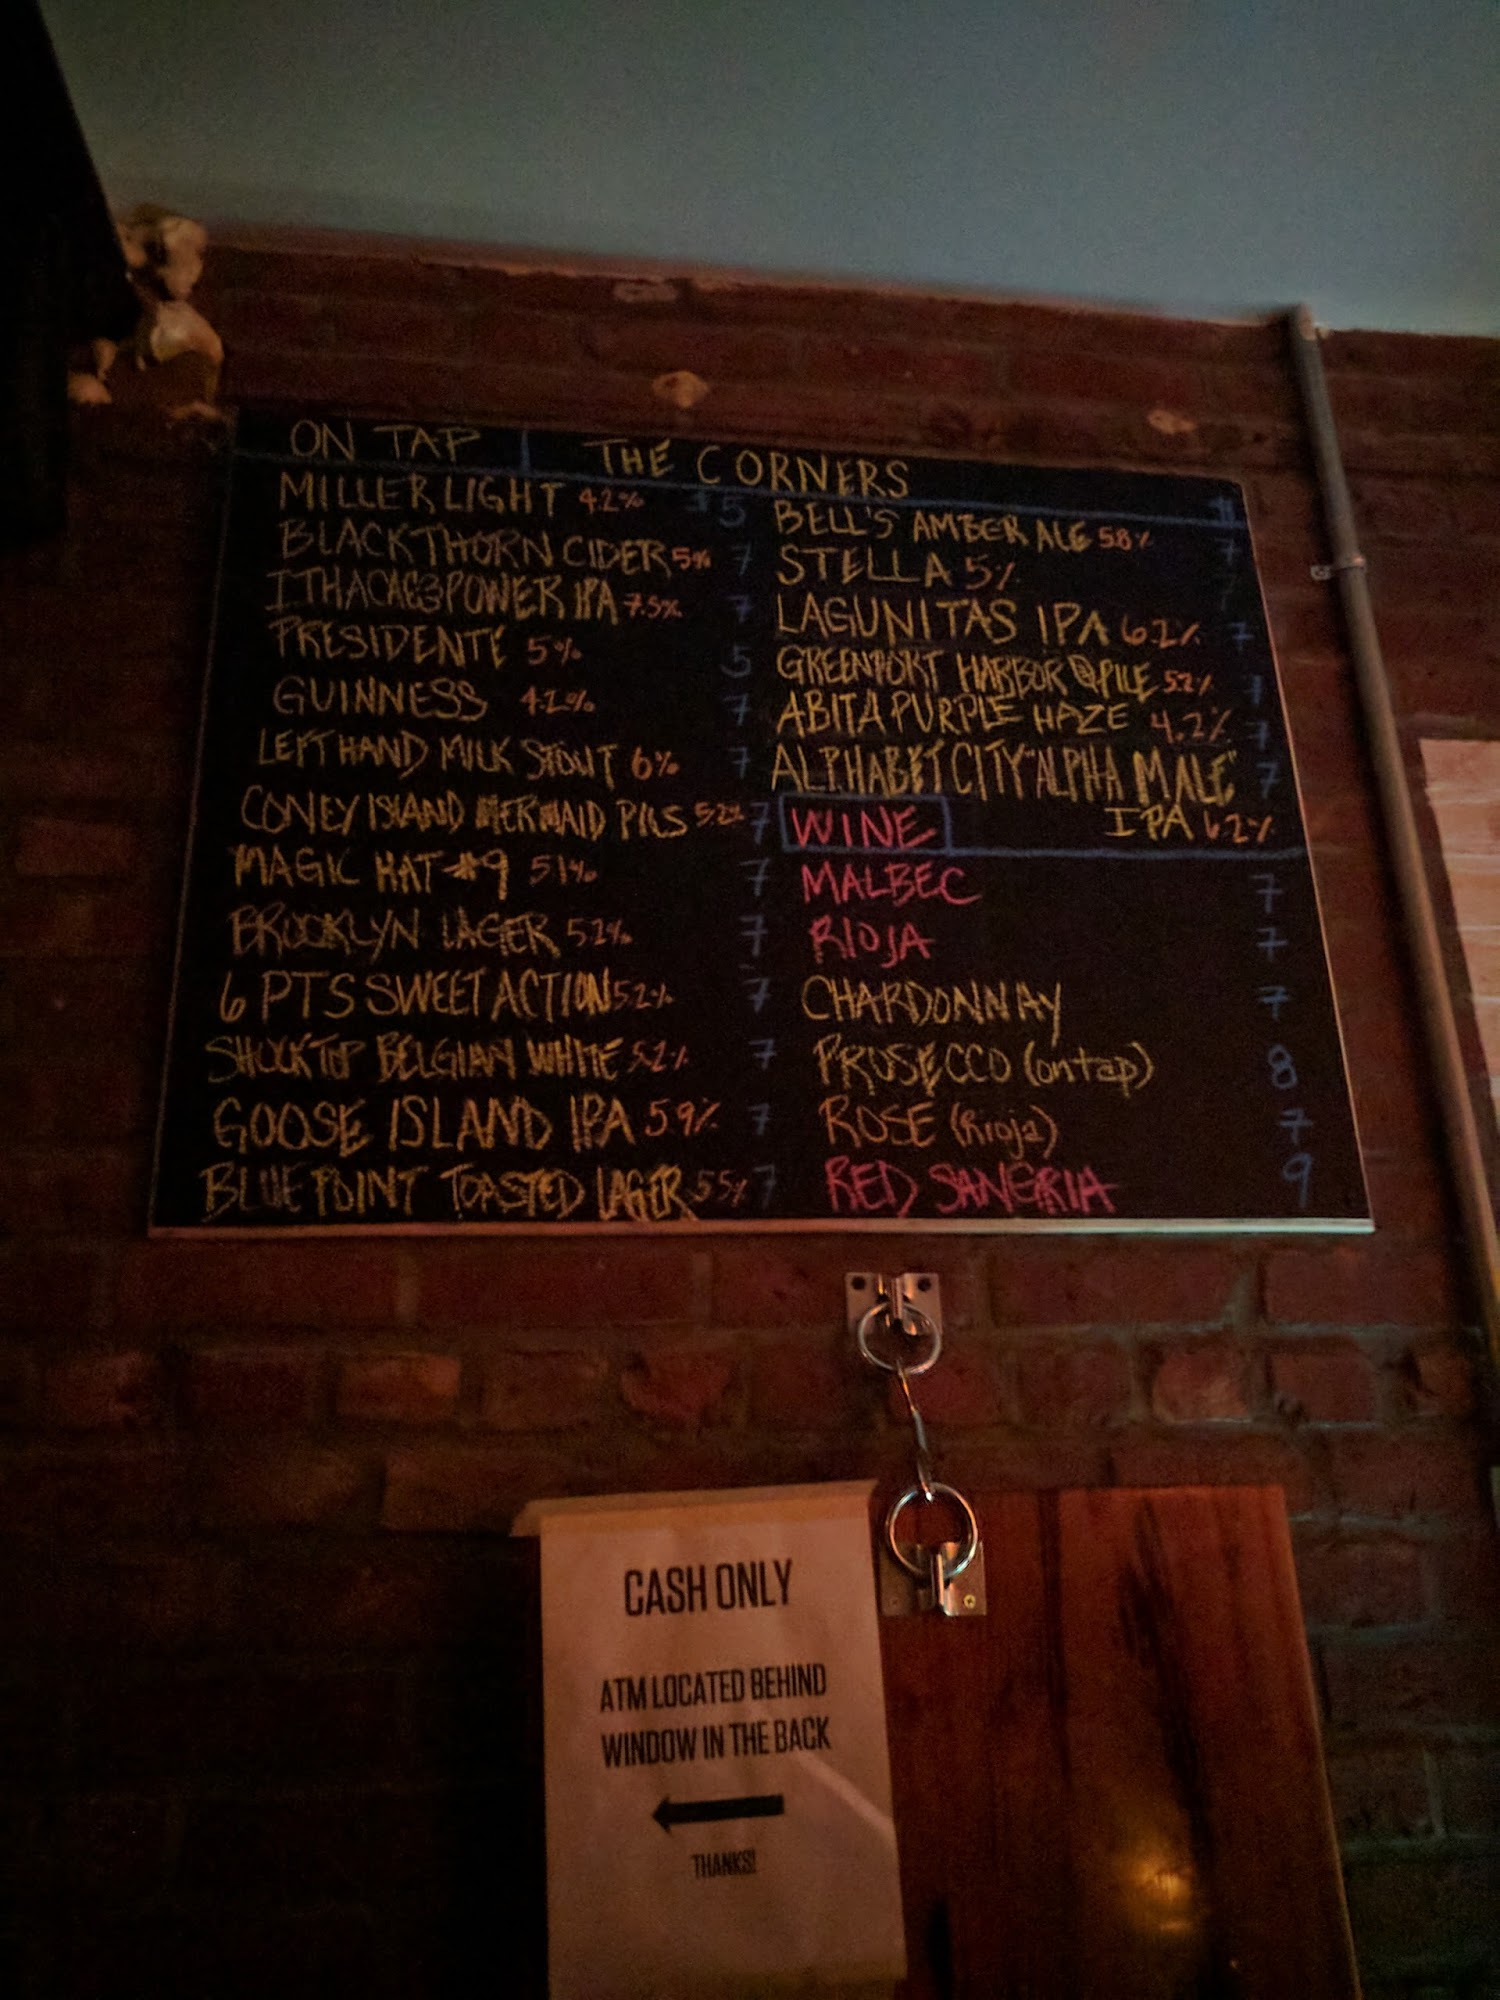 ON TAP | THE CORNERS
MILLER LIGHT 4.2% $5
BLACKTHORN CIDER 5% 7
ITHACA POWER IPA 7.5% 7
PRESIDENTE 5% 5
GUINNESS 4.2% 7
LEFT HAND MILK STOUT 6% 7
CONEY ISLAND MERMAID PILS 5.2% 7
MAGIC HAT #9 5.1% 7
BROOKLYN LAGER 5.2% 7
6 PTS SWEET ACTION 5.2% 7
SHOCK TOP BELGIAN WHITE 5.2% 7
GOOSE ISLAND IPA 5.9% 7
BLUE POINT TOASTED LAGER 5.5% 7
$
BELL'S AMBER ALE 5.8% 7
STELLA 5% 7
LAGUNITAS IPA 6.2% 7
GREENPORT HARBOR 5.2% 7
ABITA PURPLE HAZE 4.2% 7
ALPHABET CITY "ALPHA MALE" 7
IPA 6.2%
WINE
MALBEC 7
RIOJA 7
CHARDONNAY 7
PROSECCO (on tap) 8
ROSE (Rioja) 7
RED SANGRIA 9
CASH ONLY
ATM LOCATED BEHIND
WINDOW IN THE BACK
THANKS!